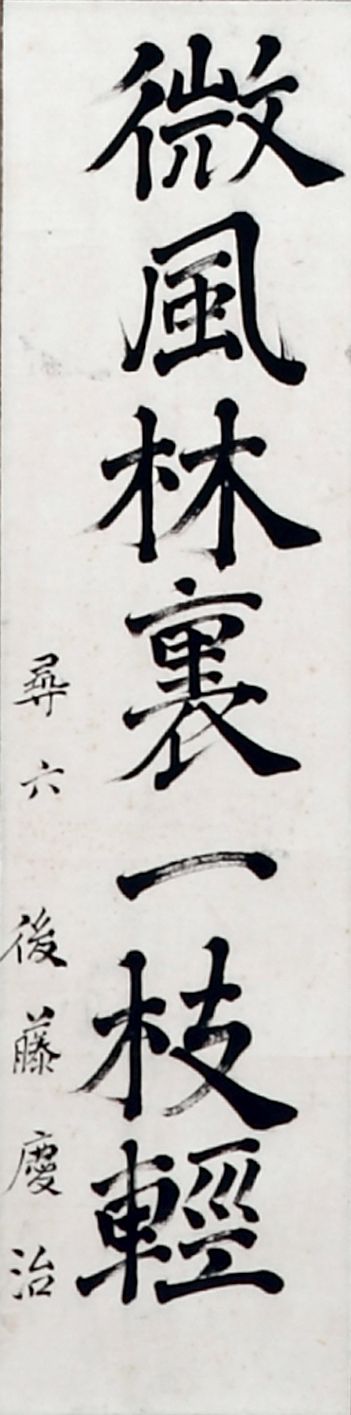 微風林裏一枝輕
尋六 後藤慶治